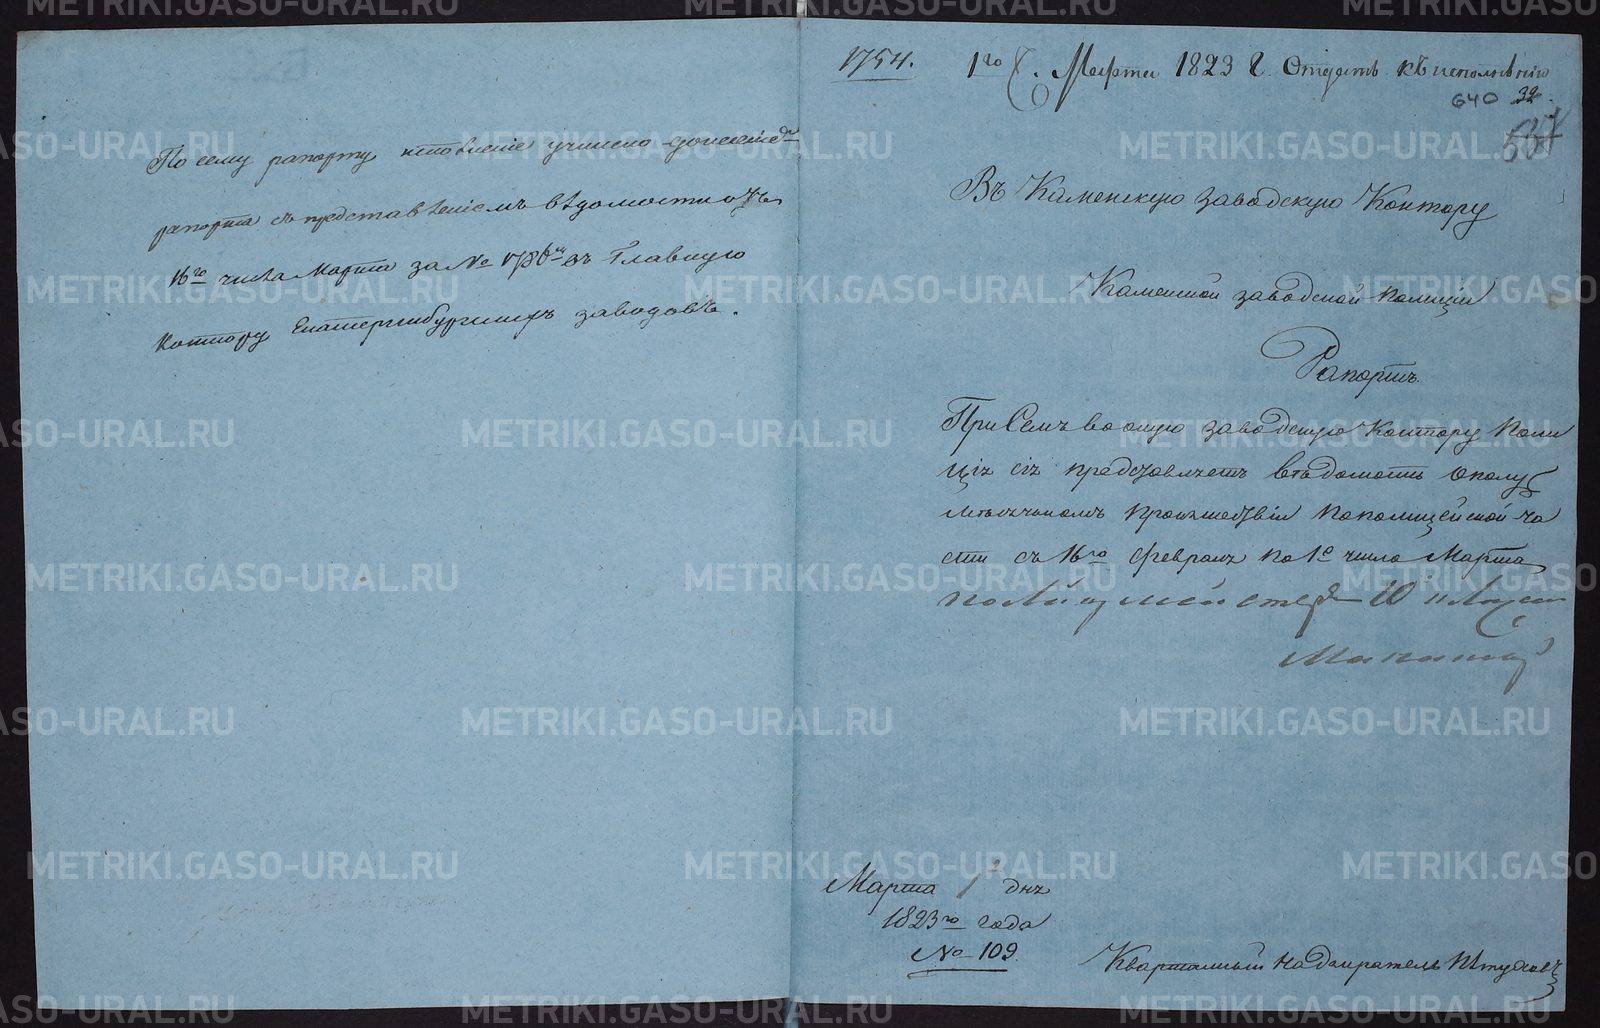 По сему рапорту исполнение учинено донесение
рапорта съ представлѣніемъ вѣдомости отъ
16го числа Марта за № въ Главную
Контору Екатеринбургскихъ заводовъ.
1754.
1го Марта 1823 г. Отдать къ исполнѣнію
640 32.
567
Въ Каменскую заводскую Контору
Каменской заводской Полиціи
Рапортъ
При Семъ во оную заводскую Контору Поли
ція сія представляетъ вѣдомость о полу
мѣсячномъ Произшествіи по полицейской ча
сти съ 16го февраля по 1е число Марта
полицмейстеръ
Марта 1 дня
1823го года
№ 109
Квартальный надзиратель Пѣтуховъ
METRIKI.GASO-URAL.RU